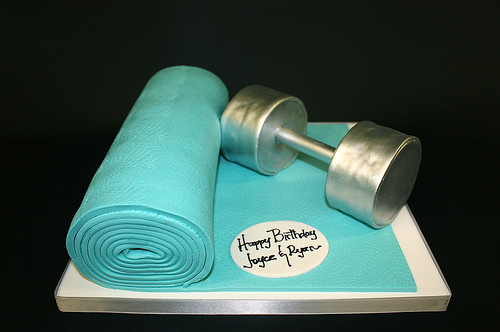 Happy Birthday
Joyce & Ryan